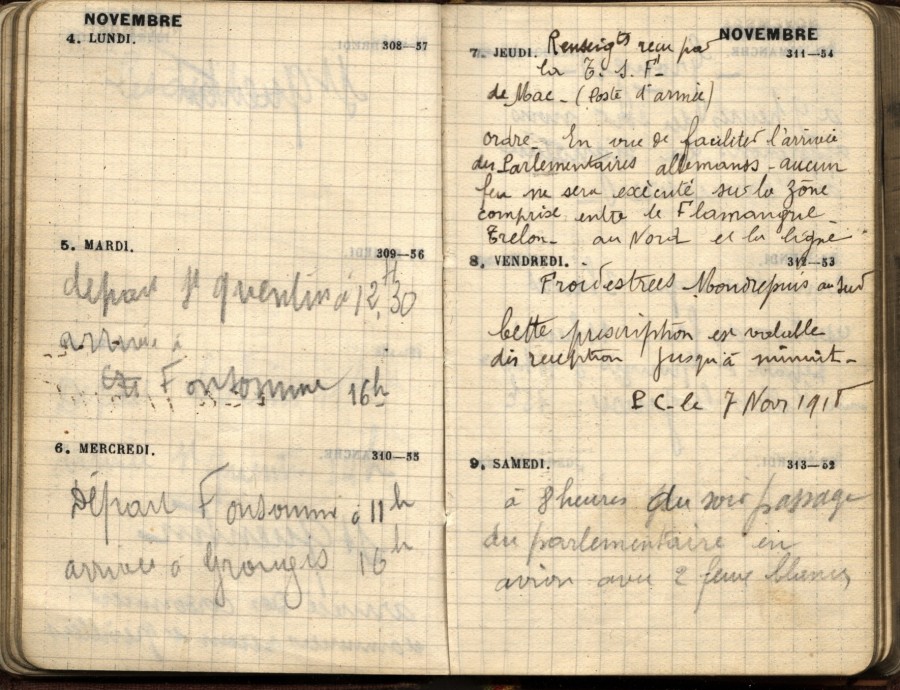 NOVEMBRE
4. LUNDI. 308—57
5. MARDI. 309—56
depart St quentin à 12h,30
arrivée à
Fonsomme 16h
6. MERCREDI. 310—55
Départ Fonsomme à 11h
arrivée à Grougis 16h
NOVEMBRE
7. JEUDI. 311—54
Renseigts recu par
la T. S. F"
de Mac - (Poste d'armée)
ordre - En vue de faciliter l'arrivée
des Parlementaires allemands - aucun
feu ne sera exècuté sur la zône
comprise entre le Flamangrie -
Trelon - au Nord et la ligne
8. VENDREDI. 312—53
Froidestrees Mondrepuis au sud
Cette prescription est valable
dès reception jusqu'à minuit -
P. C. le 7 Nov 1918
9. SAMEDI. 313—52
à 8 heures du soir passage
du parlementaire en
avion avec 2 feux blancs